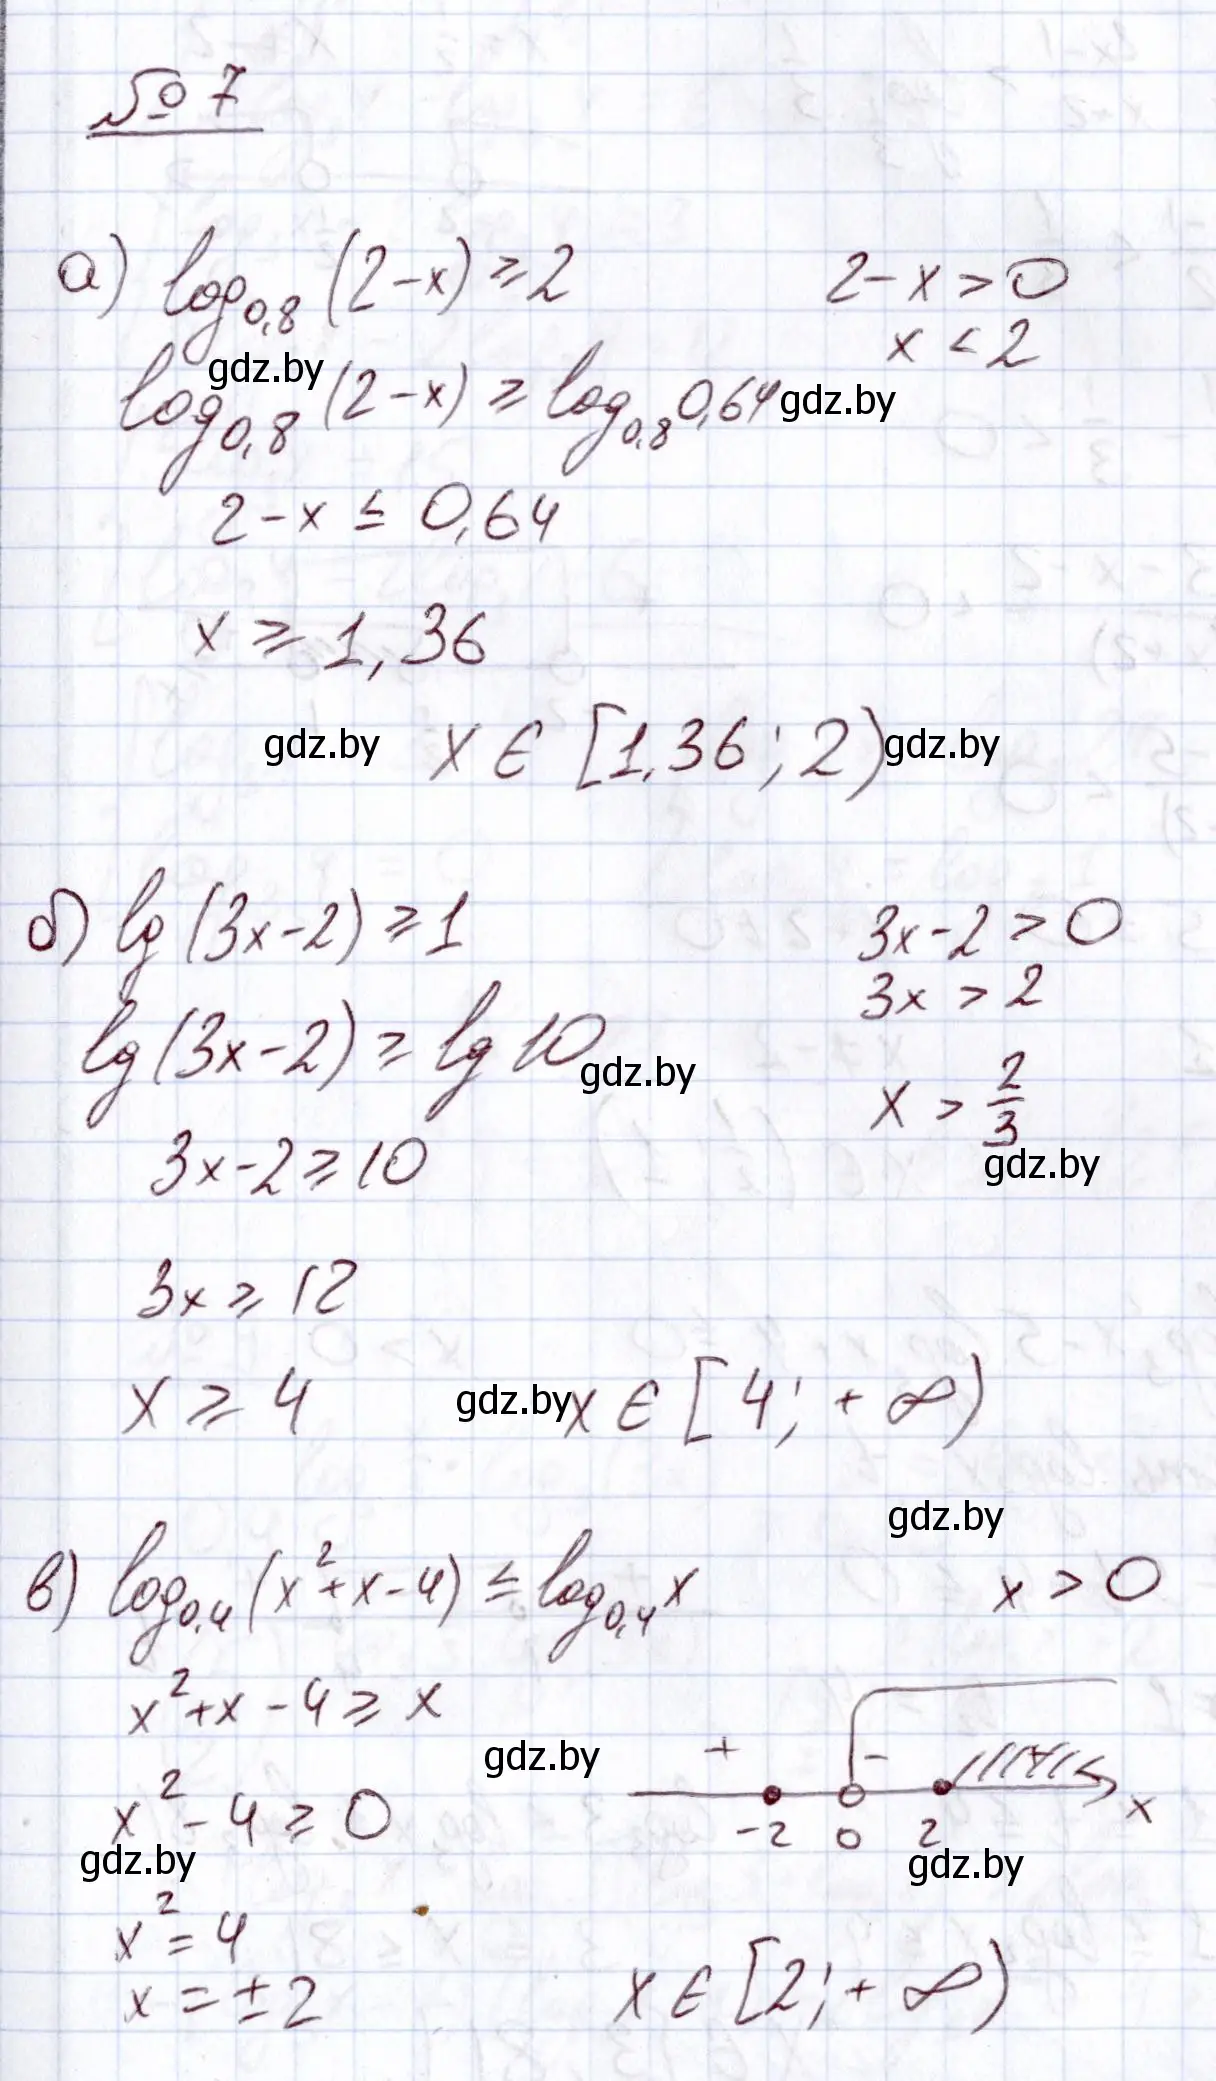 № 7
а) log₀,₈(2-x) ≥ 2    2-x > 0
x < 2
gdz.by
log₀,₈(2-x) ≥ log₀,₈0,64 gdz.by
2-x ≤ 0,64
x ≥ 1,36
gdz.by x ∈ [1,36; 2) gdz.by
б) lg(3x-2) ≥ 1    3x-2 > 0
3x > 2
lg(3x-2) ≥ lg 10 gdz.by
x > 2/3
3x-2 ≥ 10
gdz.by
3x ≥ 12
x ≥ 4    gdz.by x ∈ [4; +∞)
gdz.by
в) log₀,₄(x²+x-4) ≤ log₀,₄x    x > 0
x²+x-4 ≥ x
gdz.by
+ -
x²-4 ≥ 0
-2 0 2 x
gdz.by gdz.by
x² = 4
x = ±2    x ∈ [2; +∞)